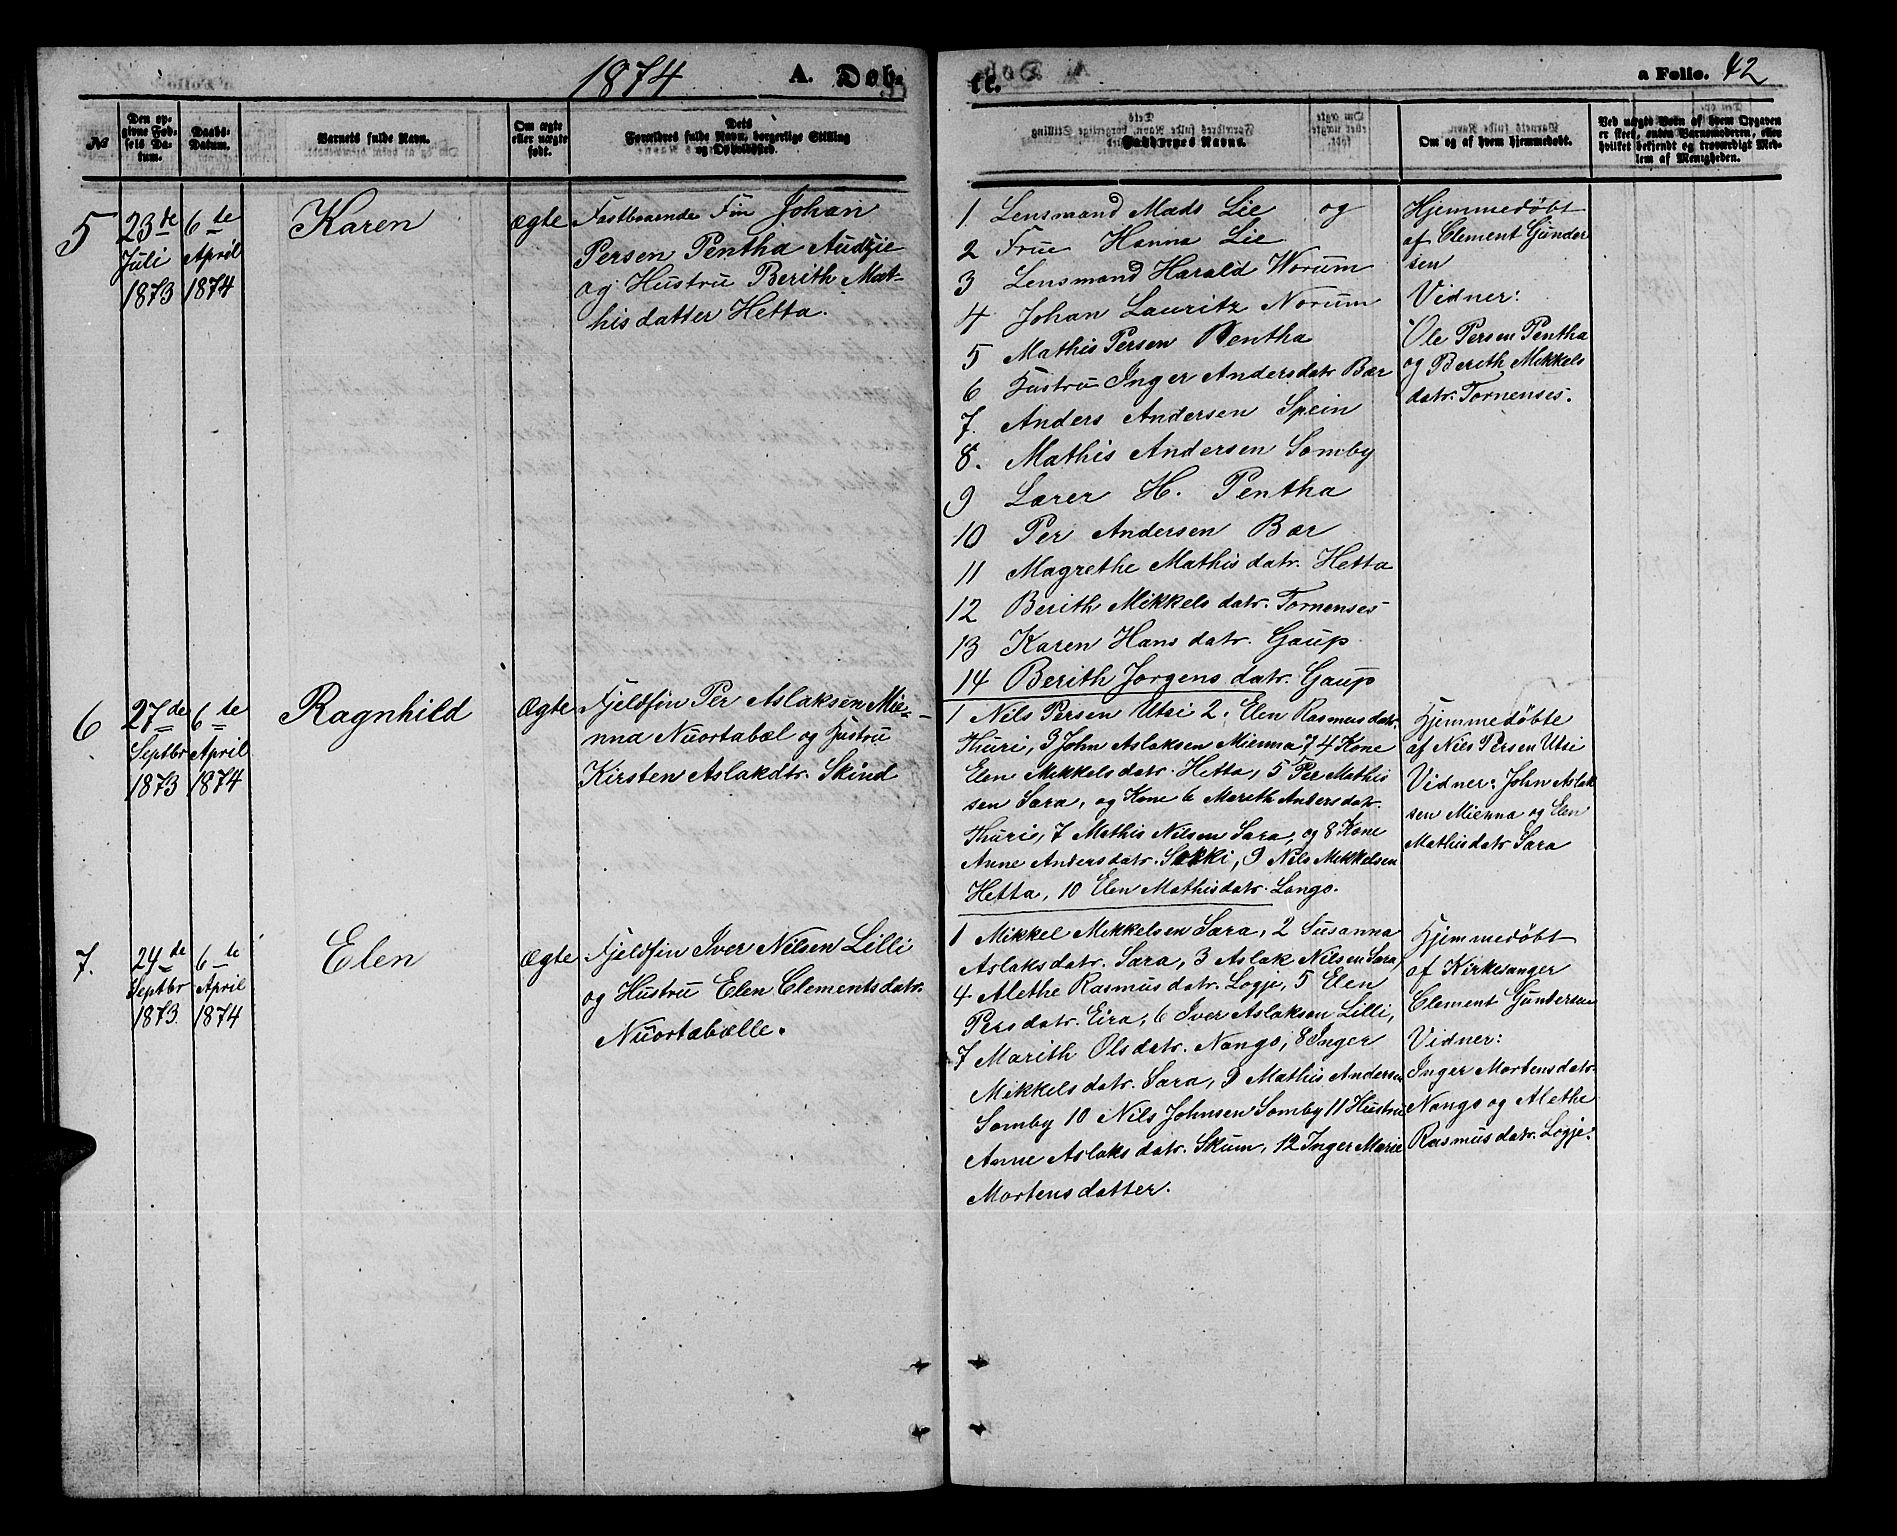 1874 A. Døb-
te. a Folio. 42
№
Den op-
givne Fød-
sels Da-
tum.
Daabs-
Datum.
Barnets fulde Navn.
Om ægte
eller uægte
født.
Dets
Forældres fulde Navn, borgerlige Stilling
og Opholdssted.
Faddernes Navne.
Om og af hvem hjemmedøbt.
Ved uægte Børn af hvem Opgaven
er skeet, enten Barnemoderen, eller
hvilket bekjendt og troværdigt Med-
lem af Menigheden.
5
23de
Juli
1873
6te
April
1874
Karen
ægte
Fastboende Fin Johan
Persen Pentha Audzie
og Hustru Berith Mat-
hisdatter Hetta.
1 Lensmand Mads Lie og
2 Frue Hanna Lie
3 Lensmand Harald Worum
4 Johan Lauritz Norum
5 Mathis Persen Pentha
6 Hustru Inger Andersdatr Bær
7. Anders Andersen Spein
8. Mathis Andersen Somby
9 Lærer H. Pentha
10 Per Andersen Bær
11 Magrethe Mathisdatr. Hetta
12 Berith Mikkelsdatr. Tornenses
13 Karen Hansdatr. Gaup
14 Berith Jørgensdatr. Gaup
Hjemmedøbt
af Clement Gunder
sen
Vidner:
Ole Persen Pentha
og Berith Mikkels
datr. Tornenses.
6
27de
Septbr
1873
6te
April
1874
Ragnhild
Ægte
Fjeldfin Per Aslaksen Mie-
nna Nuortabæl og Hustru
Kirsten Aslakdtr. Skind
1 Nils Persen Utsi 2. Elen Rasmusdatr.
Thuri, 3 John Aslaksen Mienna, 4 Kone
Elen Mikkelsdatr. Hetta, 5 Per Mathis
sen Sara, og Kone 6 Marith Andersdatr.
Thuri, 7 Mathis Nilsen Sara, og 8 Kone
Anne Andersdatr. Sokki, 9 Nils Mikkelsen
Hetta, 10 Elen Mathisdatr. Lango.
Hjemmedøbte
af Nils Persen Utsi
Vidner: John Aslak
sen Mienna og Elen
Mathisdatr Sara
7.
24de
Septbr
1873.
6te
April
1874
Elen
Ægte
Fjeldfin Iver Nilsen Lilli
og Hustru Elen Clementsdatr.
Nuortabælle.
1 Mikkel Mikkelsen Sara, 2 Susanna
Aslaksdatr. Sara, 3 Aslak Nilsen Sara,
4 Alethe Rasmusdatr. Logje, 5 Elen
Persdatr. Eira, 6 Iver Aslaksen Lilli,
7 Marith Olsdatr. Nango, 8 Inger
Mikkelsdatr. Sara, 9 Mathis Andersen
Somby 10 Nils Johnsen Somby 11 Hustru
Anne Aslaksdatr. Skum, 12 Inger Marie
Mortensdatter.
Hjemmedøbt
af Kirkesanger
Clement Gundersen
Vidner:
Inger Mortensdatr.
Nango og Alethe
Rasmusdatr. Logje.